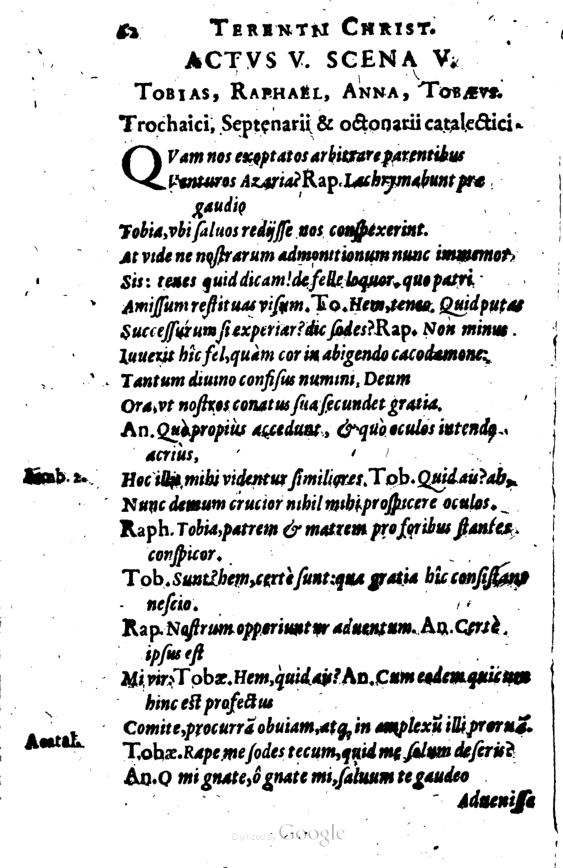 62 TERENTII CHRIST.
ACTVS V. SCENA V.
TOBIAS, RAPHAËL, ANNA, TOBÆVS.
Trochaici, Septenarii & octonarii catalectici.
QVam nos exoptatos arbitrare parentibus
Venturos Azaria? Rap. Lachrymabunt præ
gaudio
Tobia, vbi saluos redijsse nos conspexerint.
At vide ne nostrarum admonitionum nunc immemor,
Sis: tenes quid dicam! de felle loquor, quo patri
Amissum restituas visum. To. Hem, teneo. Quid putas
Successurum si experiar? dic sodes? Rap. Non minus
Iuuerit hîc fel, quàm cor in abigendo cacodæmone;
Tantum diuino confisus numini, Deum
Ora, vt nostros conatus sua secundet gratia.
An. Quò propiùs accedunt, & quò oculos intendo
acrius,
Hoc illis mihi videntur similiores. Tob. Quid aïs? ah,
Nunc demum crucior nihil mihi prospicere oculos.
Raph. Tobia, patrem & matrem pro foribus stantes
conspicor.
Tob. Sunt? hem, certè sunt: qua gratia hîc consistant
nescio.
Rap. Nostrum opperiuntur aduentum. An. Certè
ipsus est
Mi vir. Tobæ. Hem, quid aïs? An. Cum eodem quicum
hinc est profectus
Comite, procurrã obuiam, atq; in amplexũ illi proruã.
Tobæ. Rape me sodes tecum, quid me solum deseris?
An. O mi gnate, ô gnate mi, saluum te gaudeo
Aduenisse
2.
Digitized by Google